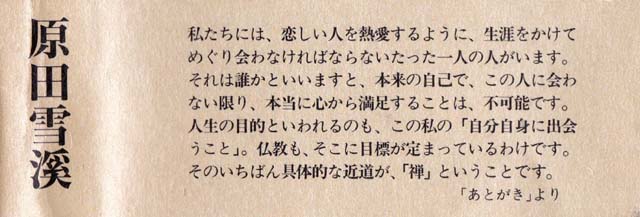 原田雪溪
私たちには、恋しい人を熱愛するように、生涯をかけて
めぐり会わなければならないたった一人の人がいます。
それは誰かといいますと、本来の自己で、この人に会わ
ない限り、本当に心から満足することは、不可能です。
人生の目的といわれるのも、この私の「自分自身に出会
うこと」。仏教も、そこに目標が定まっているわけです。
そのいちばん具体的な近道が、「禅」ということです。
「あとがき」より